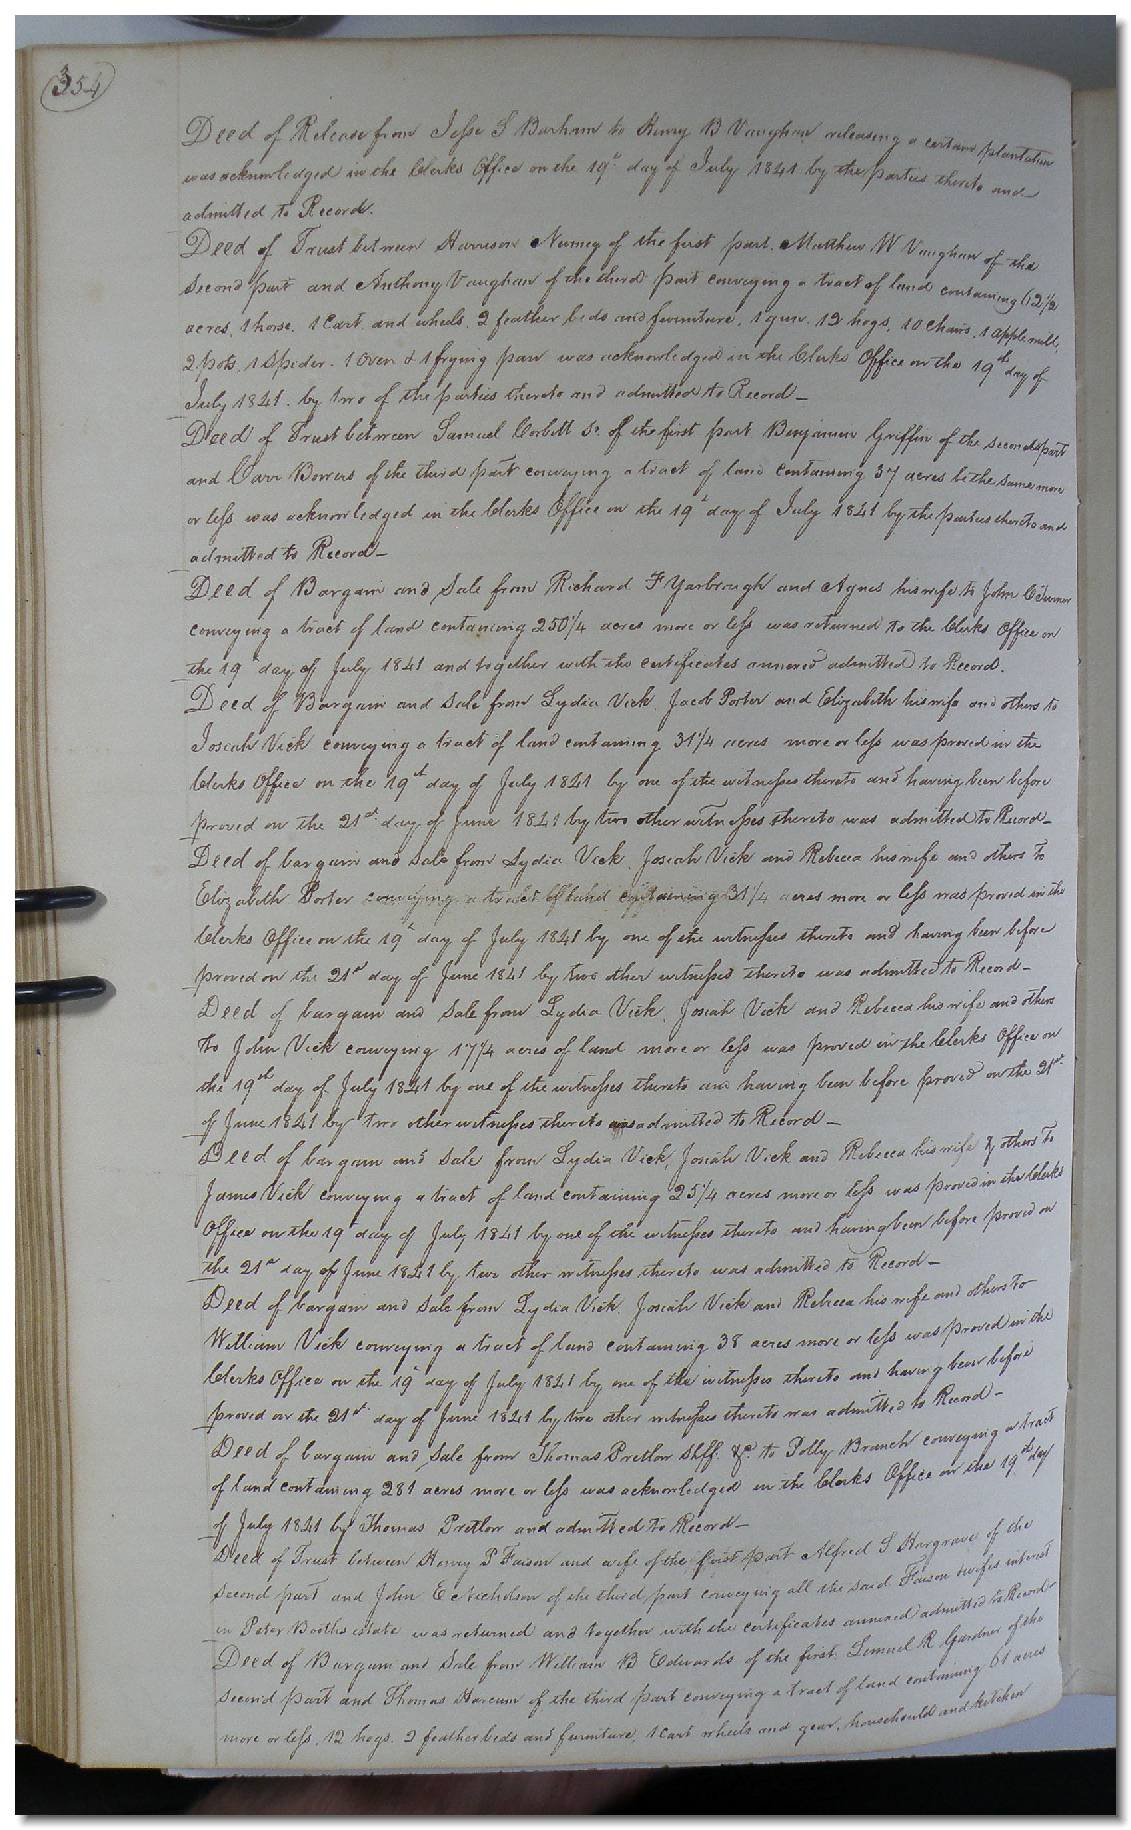 354
Deed of Release from Jesse S Barham to Henry B Vaughan releasing a certain plantation
was acknowledged in the Clerks Office on the 19th day of July 1841 by the parties thereto and
admitted to Record.
Deed of Trust between Harrison Numey of the first part. Matthew W Vaughan of the
second part and Anthony Vaughan of the third part conveying a tract of land containing 62 1/2
acres, 1 horse, 1 Cart and wheels, 2 feather beds and furniture, 1 gun, 12 hogs, 10 chairs, 1 apple mill,
2 pots, 1 Spider. 1 Oven & 1 frying pan was acknowledged in the Clerks Office on the 19th day of
July 1841. by two of the parties thereto and admitted to Record –
Deed of Trust between Samuel Corbitt Sr. of the first part Benjamin Griffin of the second part
and Carr Bowers of the third part conveying a tract of land containing 37 acres be the same more
or less was acknowledged in the Clerks Office on the 19th day of July 1841 by the parties thereto and
admitted to Record –
Deed of Bargain and Sale from Richard F Yarbrough and Agnes his wife to John C Turner
conveying a tract of land containing 250 1/4 acres more or less was returned to the Clerks Office on
the 19th day of July 1841 and together with the certificates annexed admitted to Record.
Deed of Bargain and Sale from Lydia Vick, Jacob Porter and Elizabeth his wife and others to
Josiah Vick conveying a tract of land containing 31 1/4 acres more or less was proved in the
Clerks Office on the 19th day of July 1841 by one of the witnesses thereto and having been before
proved on the 21st day of June 1841 by two other witnesses thereto was admitted to Record –
Deed of bargain and Sale from Lydia Vick, Josiah Vick and Rebecca his wife and others to
Elizabeth Porter conveying a tract of land containing 31 1/4 acres more or less was proved in the
Clerks Office on the 19th day of July 1841 by one of the witnesses thereto and having been before
proved on the 21st day of June 1841 by two other witnesses thereto was admitted to Record –
Deed of bargain and Sale from Lydia Vick, Josiah Vick and Rebecca his wife and others
to John Vick conveying 17 1/4 acres of land more or less was proved in the Clerks Office on
the 19th day of July 1841 by one of the witnesses thereto and having been before proved on the 21st
of June 1841 by two other witnesses thereto was admitted to Record –
Deed of bargain and Sale from Lydia Vick, Josiah Vick and Rebecca his wife & others to
James Vick conveying a tract of land containing 25 1/4 acres more or less was proved in the Clerks
Office on the 19th day of July 1841 by one of the witnesses thereto and having been before proved on
the 21st day of June 1841 by two other witnesses thereto was admitted to Record –
Deed of bargain and Sale from Lydia Vick, Josiah Vick and Rebecca his wife and others to
William Vick conveying a tract of land containing 38 acres more or less was proved in the
Clerks Office on the 19th day of July 1841 by one of the witnesses thereto and having been before
proved on the 21st day of June 1841 by two other witnesses thereto was admitted to Record –
Deed of bargain and Sale from Thomas Pretlow Shff. &c to Polly Branch conveying a tract
of land containing 281 acres more or less was acknowledged in the Clerks Office on the 19th day
of July 1841 by Thomas Pretlow and admitted to Record –
Deed of Trust between Henry P Faison and wife of the first part Alfred S Hargrave of the
second part and John E Nicholson of the third part conveying all the said Faison & wifes interest
in Peter Booths estate was returned and together with the certificates annexed admitted to Record –
Deed of Bargain and Sale from William B Edwards of the first, Lemuel R Gardner of the
second part and Thomas Harcum of the third part conveying a tract of land containing 61 acres
more or less, 12 hogs. 2 feather beds and furniture, 1 Cart wheels and gear, household and kitchen